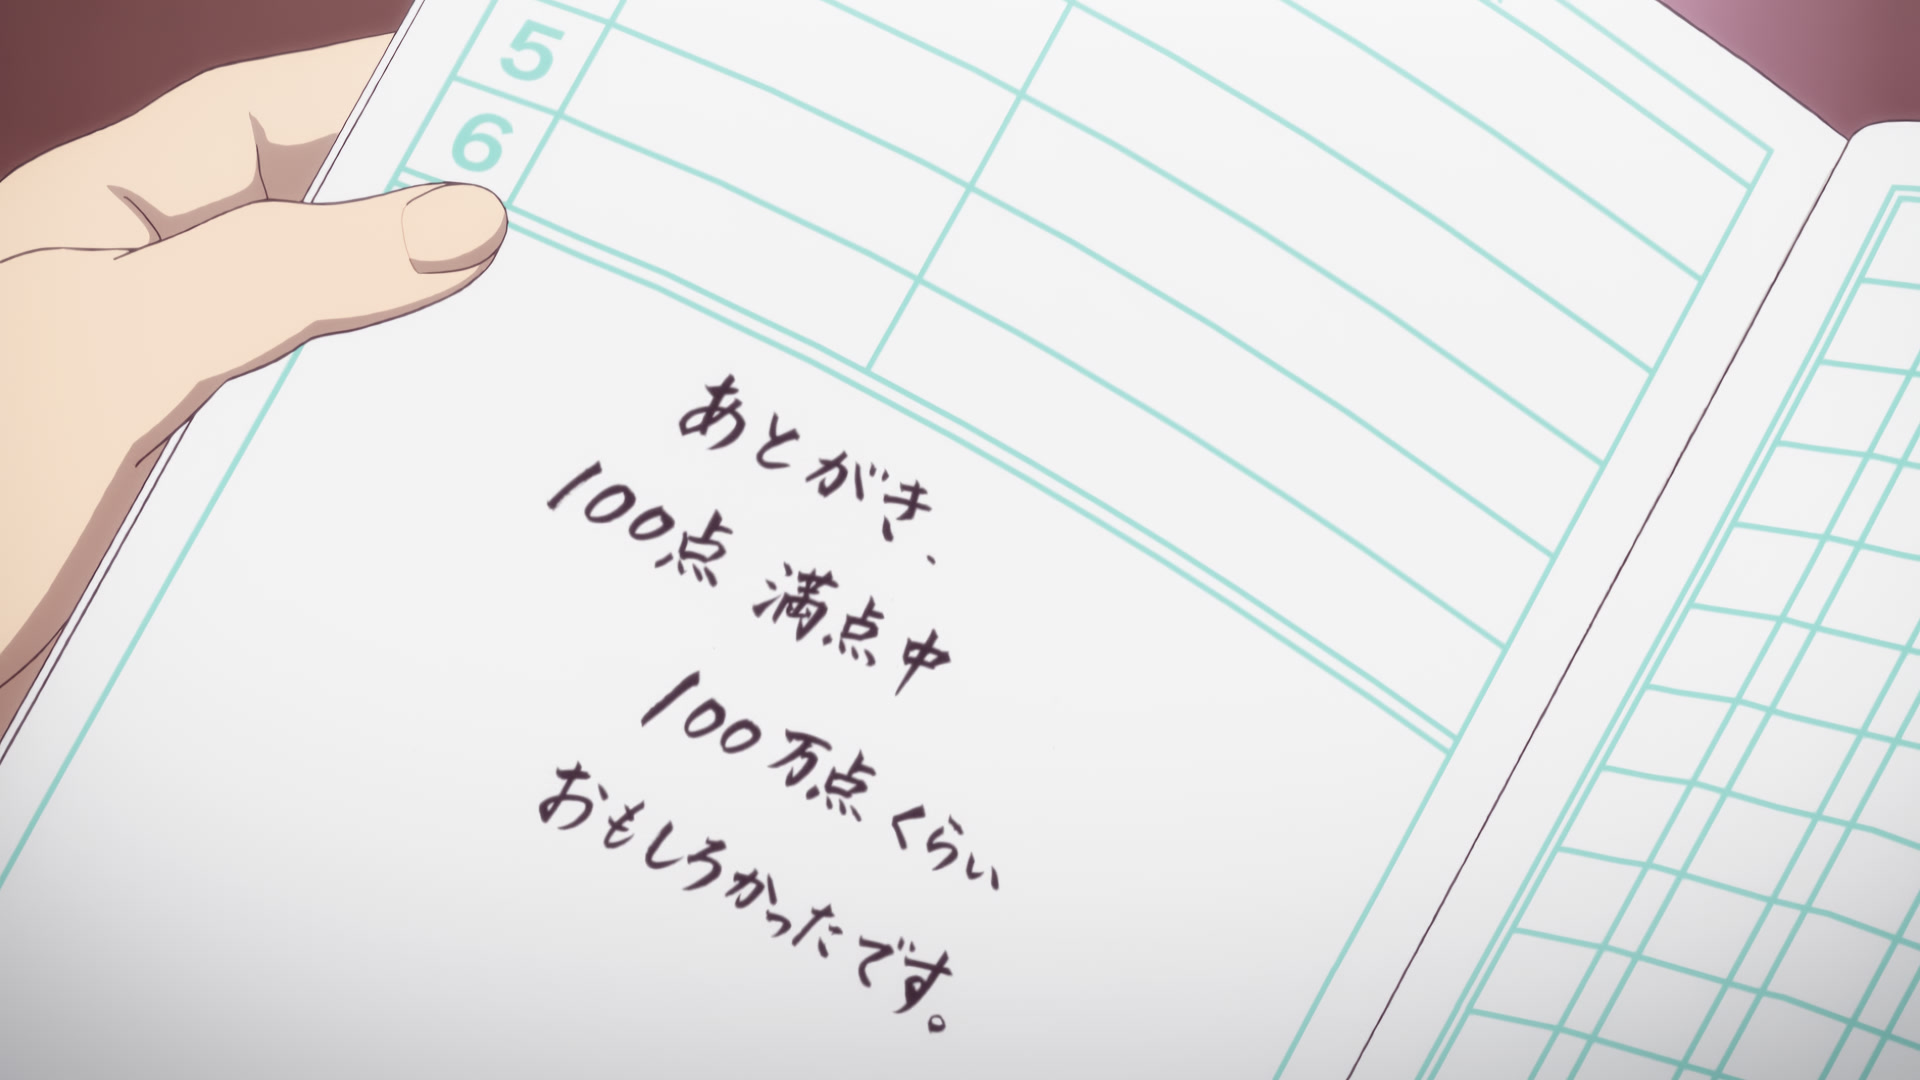 5
6
あとがき、
100点 満点中
100万点くらい
おもしろかったです。